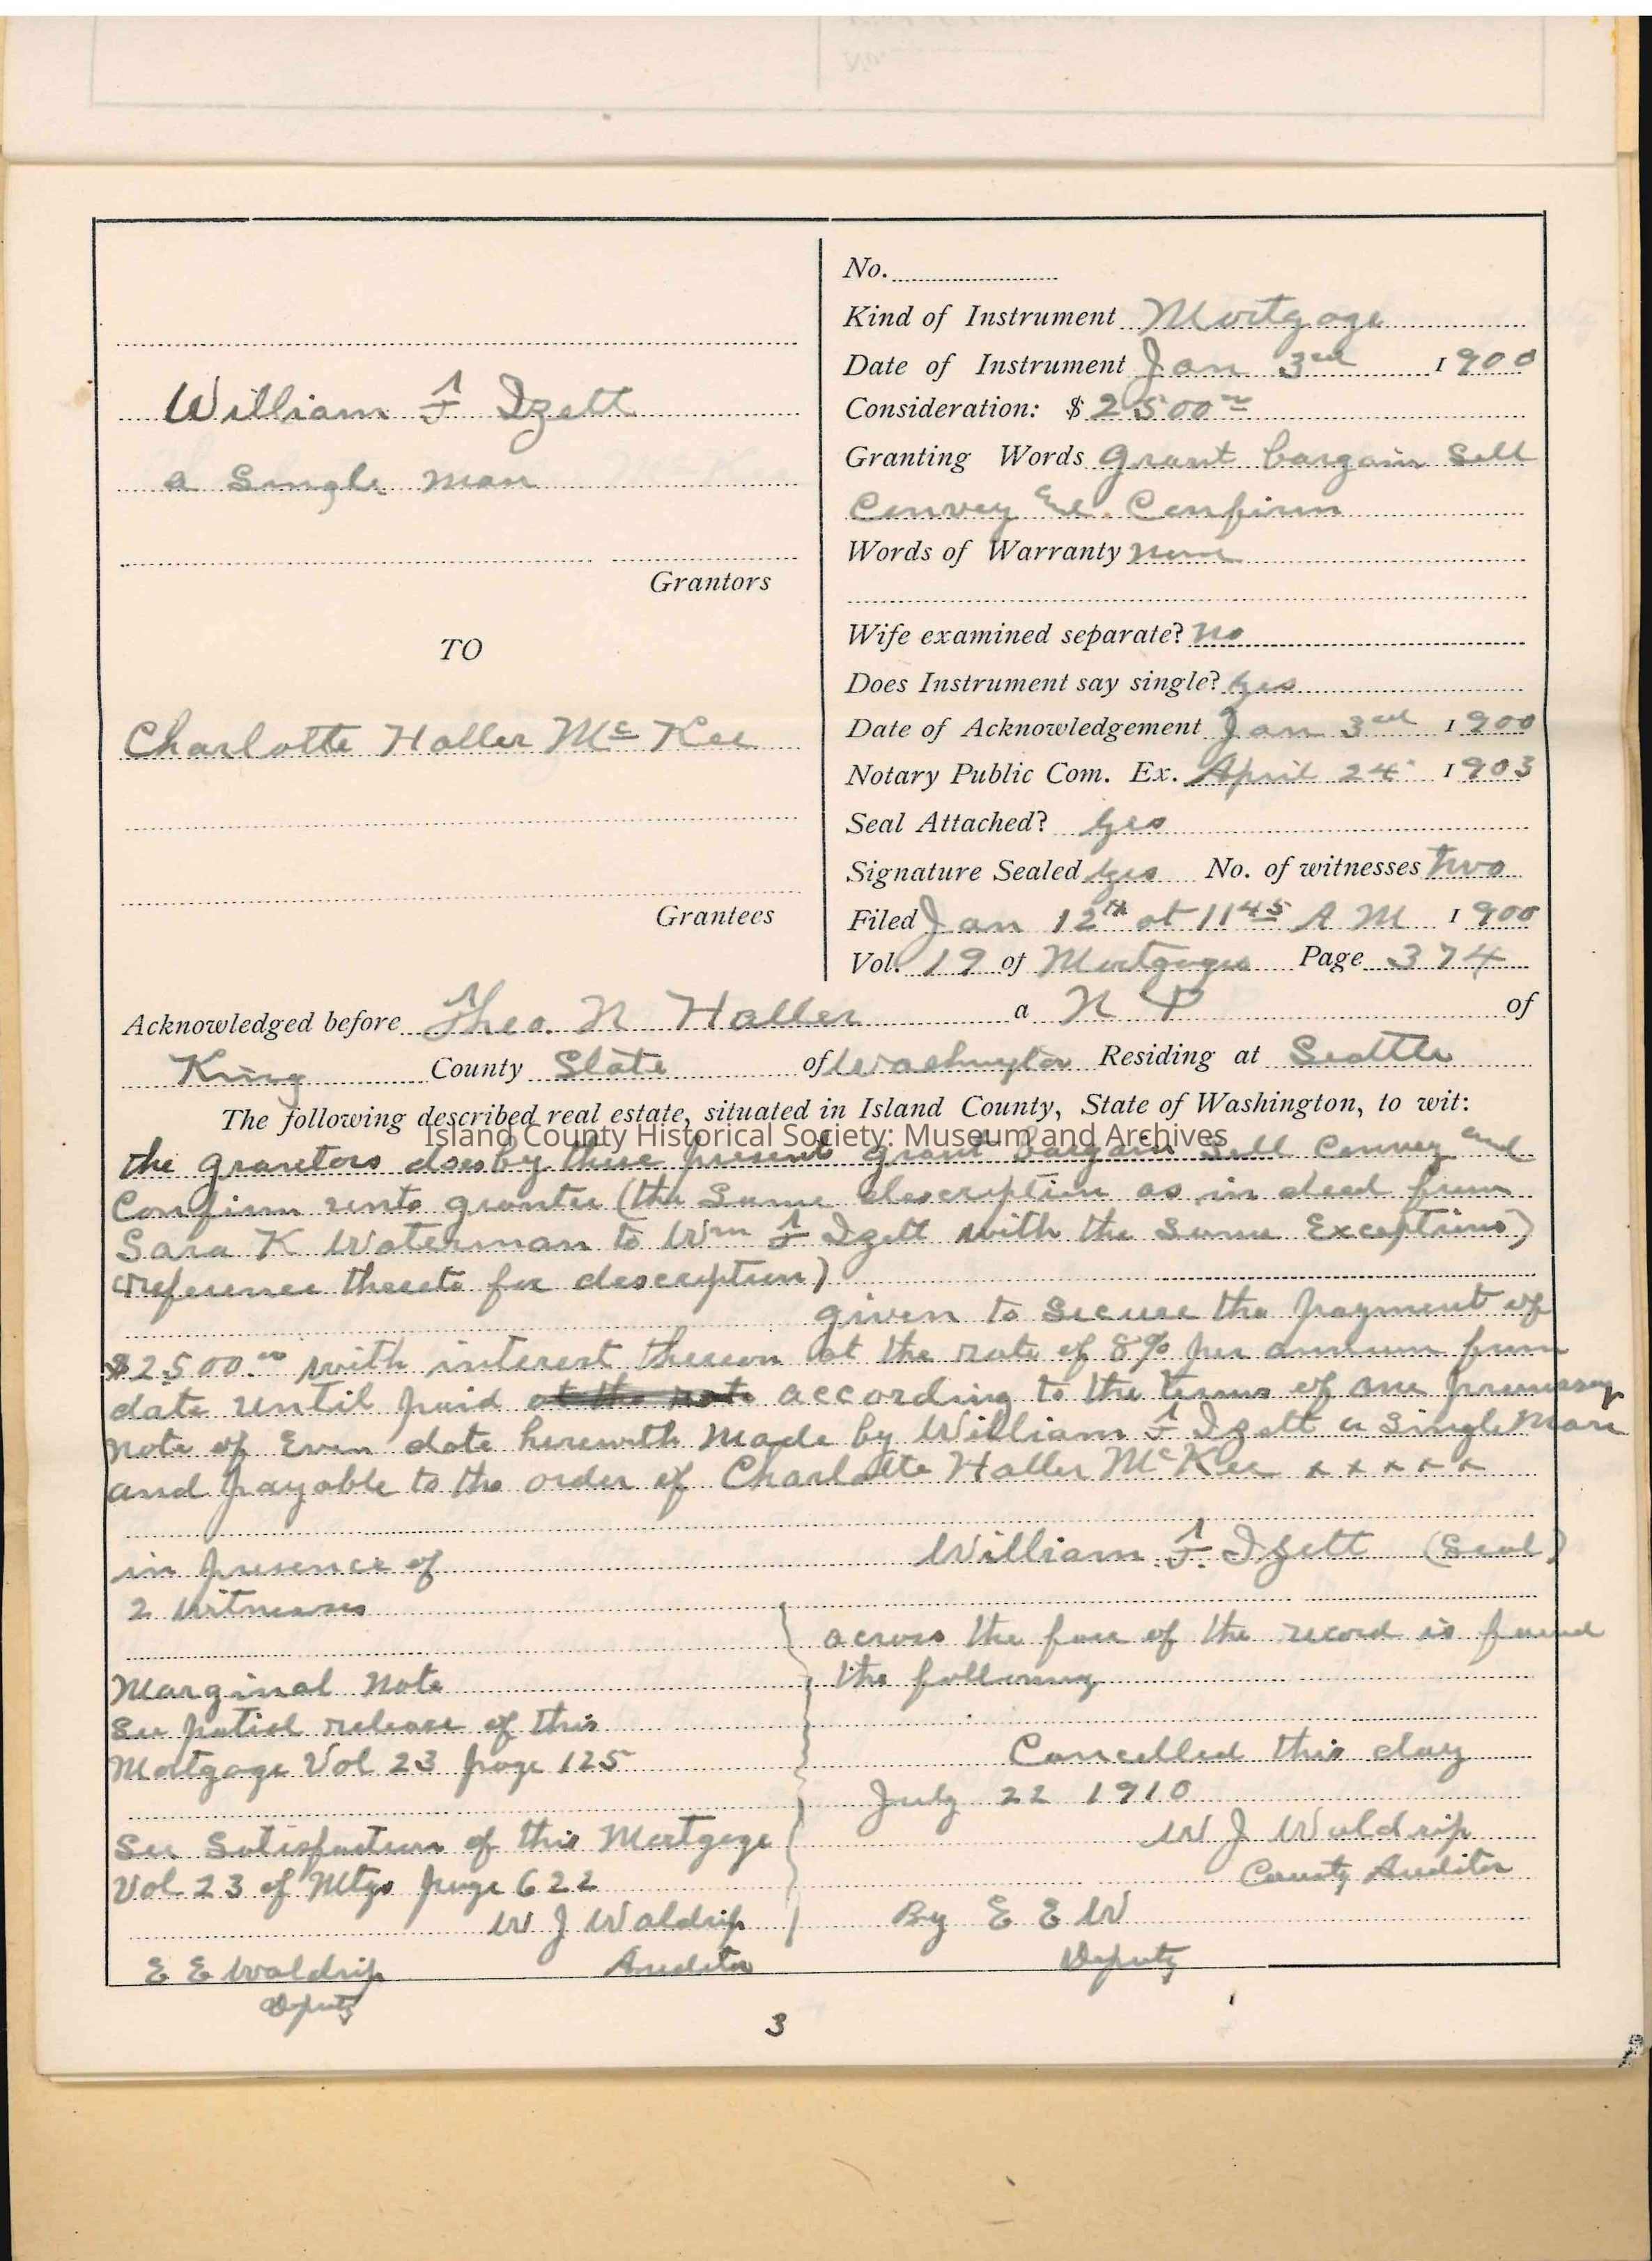 No.
Kind of Instrument Mortgage
Date of Instrument Jan 3rd 1900
William F Izett
Consideration: $2500.00
a Single man
Granting Words Grant bargain Sell
Convey and Confirm
Words of Warranty None
Grantors
Wife examined separate? No
TO
Does Instrument say single? Yes
Charlotte Haller Mc Kee
Date of Acknowledgement Jan 3rd 1900
Notary Public Com. Ex. April 24 1903
Seal Attached? Yes
Signature Sealed Yes No. of witnesses Two
Grantees
Filed Jan 12th at 11 45 A M 1900
Vol. 19 of Mortgages Page 374
Acknowledged before Theo. N Haller a N P of
King County State of Washington Residing at Seattle
The following described real estate, situated in Island County, State of Washington, to wit:
Island County Historical Society: Museum and Archives
the grantors does by these present grant bargain Sell Convey and
Confirm unto grantee (the Same description as in deed from
Sara K Waterman to Wm F Izett with the Same Exceptions)
(reference thereto for description)
given to Secure the payment of
$2500.00 with interest thereon at the rate of 8% per annum from
date until paid at the rate according to the terms of one promissory
note of Even date herewith Made by William F Izett a Single Man
and payable to the order of Charlotte Haller McKee x x x x x
William F. Izett (Seal)
in presence of
2 Witnesses
across the face of the record is found
the following
Marginal Note
See patial release of this
Mortgage Vol 23 page 125
Cancelled this day
July 22 1910
See Satisfaction of this Mortgage
W J Waldrip
Vol 23 of Mtgs page 622
County Auditor
W J Waldrip
By E E W
E E Waldrip Auditor
Deputy
Deputy
3